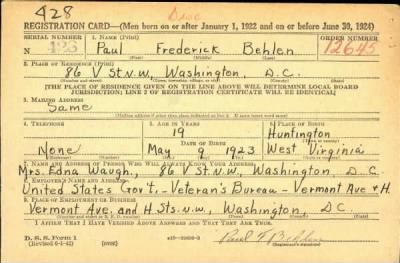 428 Disc
REGISTRATION CARD—(Men born on or after January 1, 1922 and on or before June 30, 1924)
SERIAL NUMBER 1. NAME (Print) ORDER NUMBER
N 423 Paul Frederick Behlen 12645
(First) (Middle) (Last)
2. PLACE OF RESIDENCE (Print)
86 V St. N.W., Washington, D.C.
[THE PLACE OF RESIDENCE GIVEN ON THE LINE ABOVE WILL DETERMINE LOCAL BOARD
JURISDICTION; LINE 2 OF REGISTRATION CERTIFICATE WILL BE IDENTICAL]
3. MAILING ADDRESS
Same
[Mailing address if other than place indicated on line 2. If same insert word same]
4. TELEPHONE 5. AGE IN YEARS 6. PLACE OF BIRTH
19 Huntington
DATE OF BIRTH (Town or county)
None May 9 1923 West Virginia
(Mo.) (Day) (Yr.) (State or country)
7. NAME AND ADDRESS OF PERSON WHO WILL ALWAYS KNOW YOUR ADDRESS
Mrs. Edna Waugh, 86 V St. N.W., Washington, D.C.
8. EMPLOYER'S NAME AND ADDRESS
United States Gov't. - Veteran's Bureau - Vermont Ave & H.
9. PLACE OF EMPLOYMENT OR BUSINESS
Vermont Ave. and H. Sts. N.W., Washington, D.C.
I AFFIRM THAT I HAVE VERIFIED ABOVE ANSWERS AND THAT THEY ARE TRUE.
D. S. S. Form 1
(Revised 6-1-42) (over) Paul F. Behlen